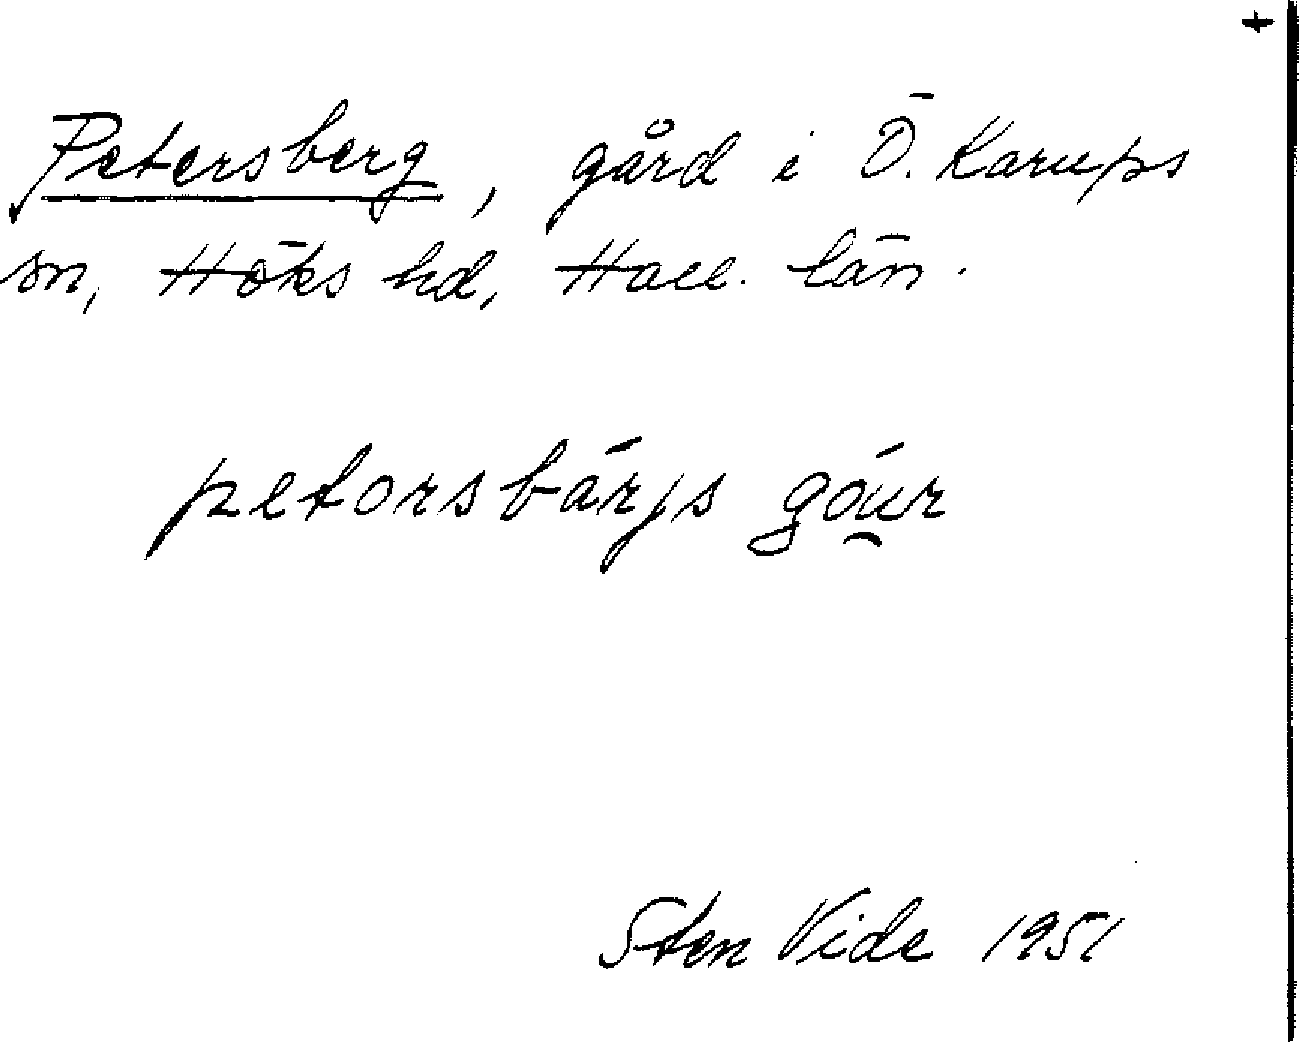 +
Petersberg, gård i Ö. Karups
sn, Höks hd, Hall. län.
petorsbärjs góu̯r
Sten Vide 1951